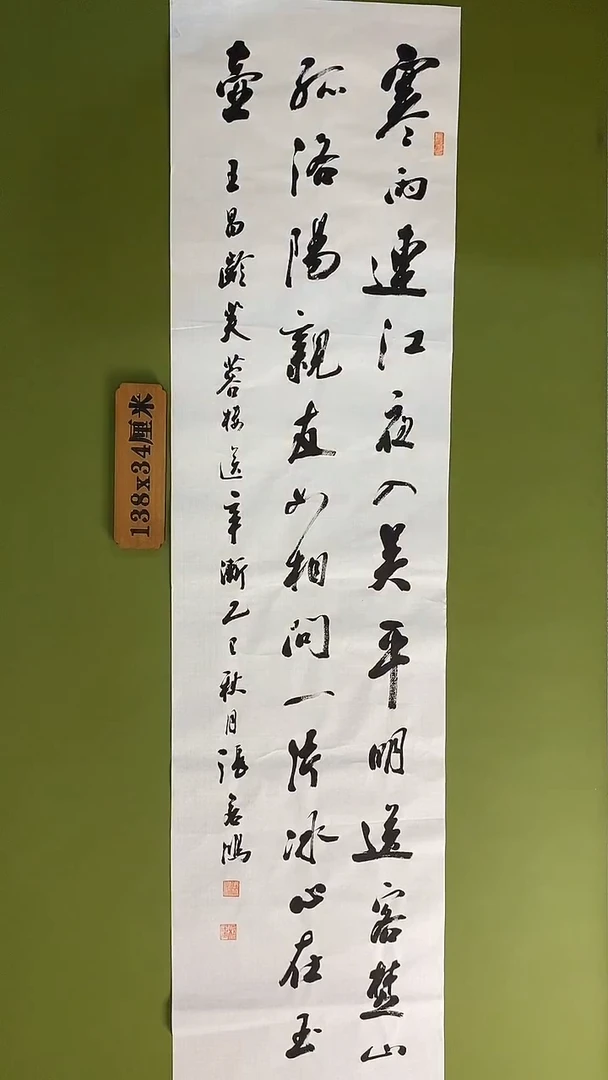 寒雨連江夜入吴平明送客楚山
孤洛陽親友如相問一片冰心在玉
壺
王昌齡芙蓉楼送辛漸乙巳秋月張意鴻
138x34厘米